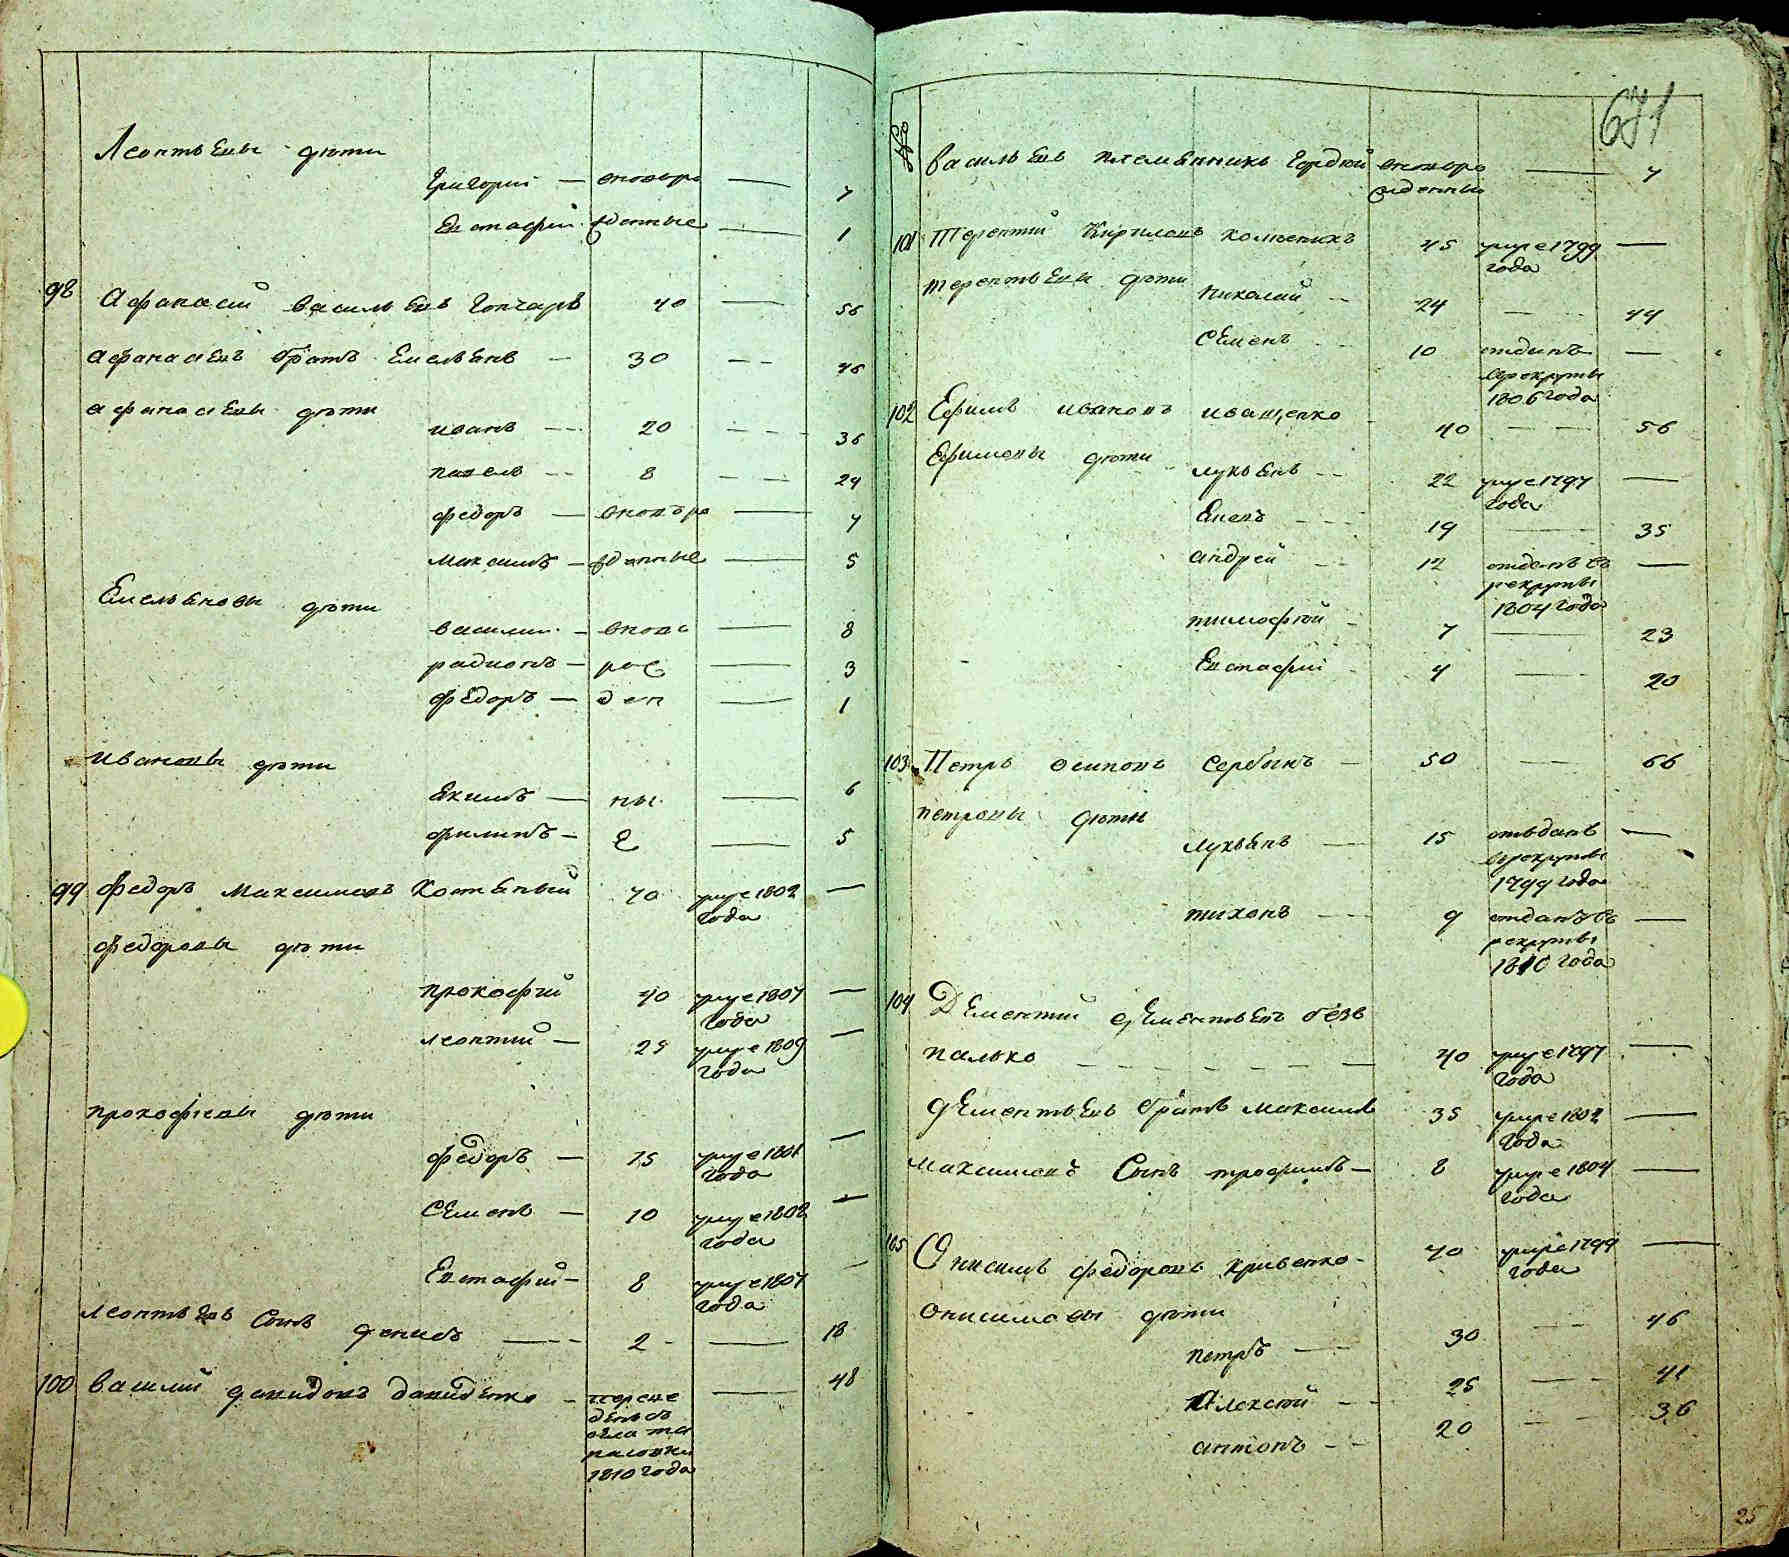 Леонтьевы дѣти
Григорий — вновьро — 7
Евстафий жденные — 1
98 Афанасий васильевъ Гончаръ 40 — 56
афанасиевъ братъ Емельянъ — 30 — 46
афанасиевы дѣти
иванъ — 20 — 36
павелъ — 8 — 24
федоръ — вновьро — 7
максимъ — жденные — 5
Емельяновы дѣти
василий — вновь — 8
радионъ — рож — 3
федоръ — ден — 1
ивановы дѣти
Якимъ — ны — 6
филипъ — е — 5
99 федоръ максимовъ Котяный 70 умре 1802 —
года
федоровы дѣти
прокофий 40 умре 1807 —
года
леонтий — 25 умре 1809 —
года
прокофиевы дѣти
федоръ — 15 умре 1801 —
года
Семенъ — 10 умре 1802 —
года
Евстафий — 8 умре 1807 —
года
леонтьевъ Сынъ денисъ — 2 — 18
100 василий давидовъ давиденко — — 48
1810 года
671
№
васильевъ племянникъ Гордѣй вновьро — 7
жденный
101 Терентий Кириловъ 45 умре 1799 —
года
терентьевы дѣти
николай — 24 — 44
Семенъ — 10 отданъ —
врекруты
1806 года
102 Ефимъ ивановъ иващенко 40 — 56
Ефимовы дѣти
лукьянъ — 22 умре 1797 —
года
19 — 35
андрей — 12 отданъ въ —
рекруты
1804 года
тимофѣй — 7 — 23
Евстафий — 4 — 20
103 Петръ осиповъ Сербинъ — 50 — 66
петровы дѣти
лукьянъ — 15 отъданъ —
врекруты
1799 года
тихонъ — 9 отданъ въ —
рекруты
1810 года
104 Дементий дементьевъ безъ
палько — 40 умре 1797 —
года
дементьевъ братъ максимъ 35 умре 1802 —
года
максимовъ Сынъ трофимъ — 8 умре 1804 —
года
105 Онисимъ федоровъ кривенко — 70 умре 1799 —
года
онисимовы дѣти
петръ — 30 — 46
Алексѣй — 25 — 41
антонъ — 20 — 36
25